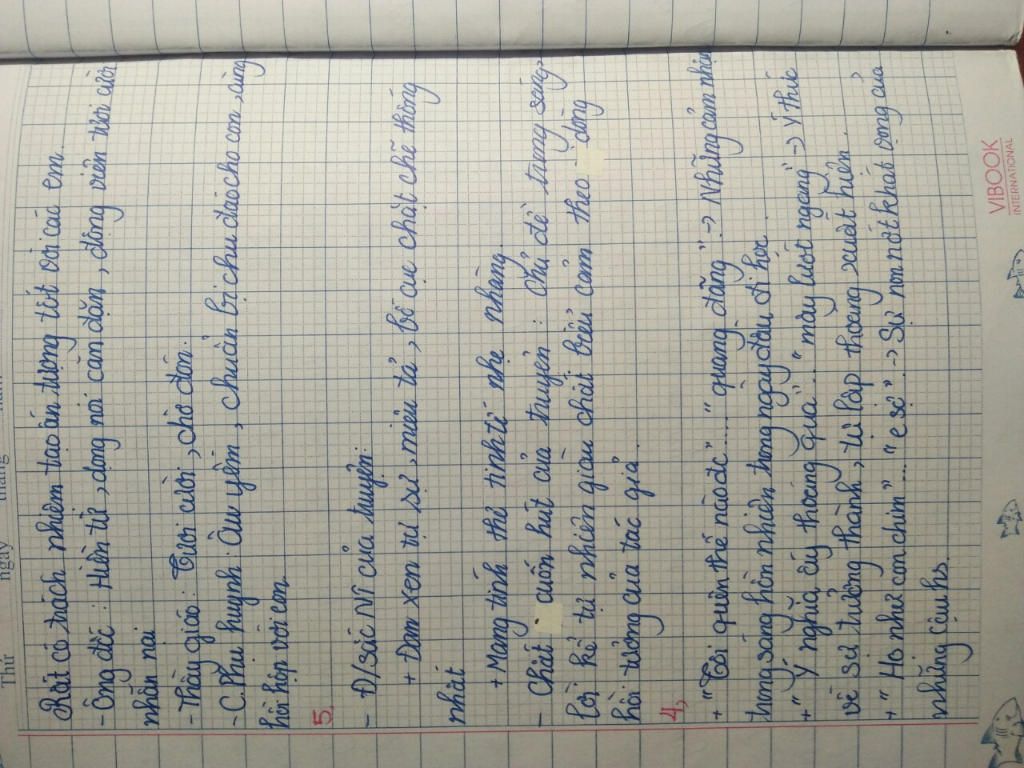 Thứ ngày tháng năm
Rất có trách nhiệm tạo ấn tượng tốt với các em.
- Ông đốc: Hiền từ, dọng nói căn dặn, động viên, tươi cười
nhẫn nại
- Thầy giáo: Tươi cười, chờ đón.
- C. Phụ huynh: Âu yếm, chuẩn bị chu đáo cho con, cùng
hồi hộp với con
5,
- Đ/sắc NT của truyện:
+ Đan xen tự sự, miêu tả, bố cục chặt chẽ thống
nhất
+ Mang tính thế tinh tế nhẹ nhàng
- Chất cuốn hút của truyện: Chủ đề trong sáng,
lời kể tự nhiên giàu chất biểu cảm theo dòng
hồi tưởng của tác giả.
4,
+ "Tôi quên thế nào đc"...." quang đãng" -> Những cảm nhận
trong sáng hồn nhiên trong ngày đầu đi học.
+ " Ý nghĩa ấy thoáng qua"..." mây lướt ngang" -> Ý thức
về sự trưởng thành, từ lập thoáng xuất hiện.
+ " Họ như con chim"..." e sợ" -> Sự non nớt khát vọng của
những cậu hs.
VIBOOK
INTERNATIONAL